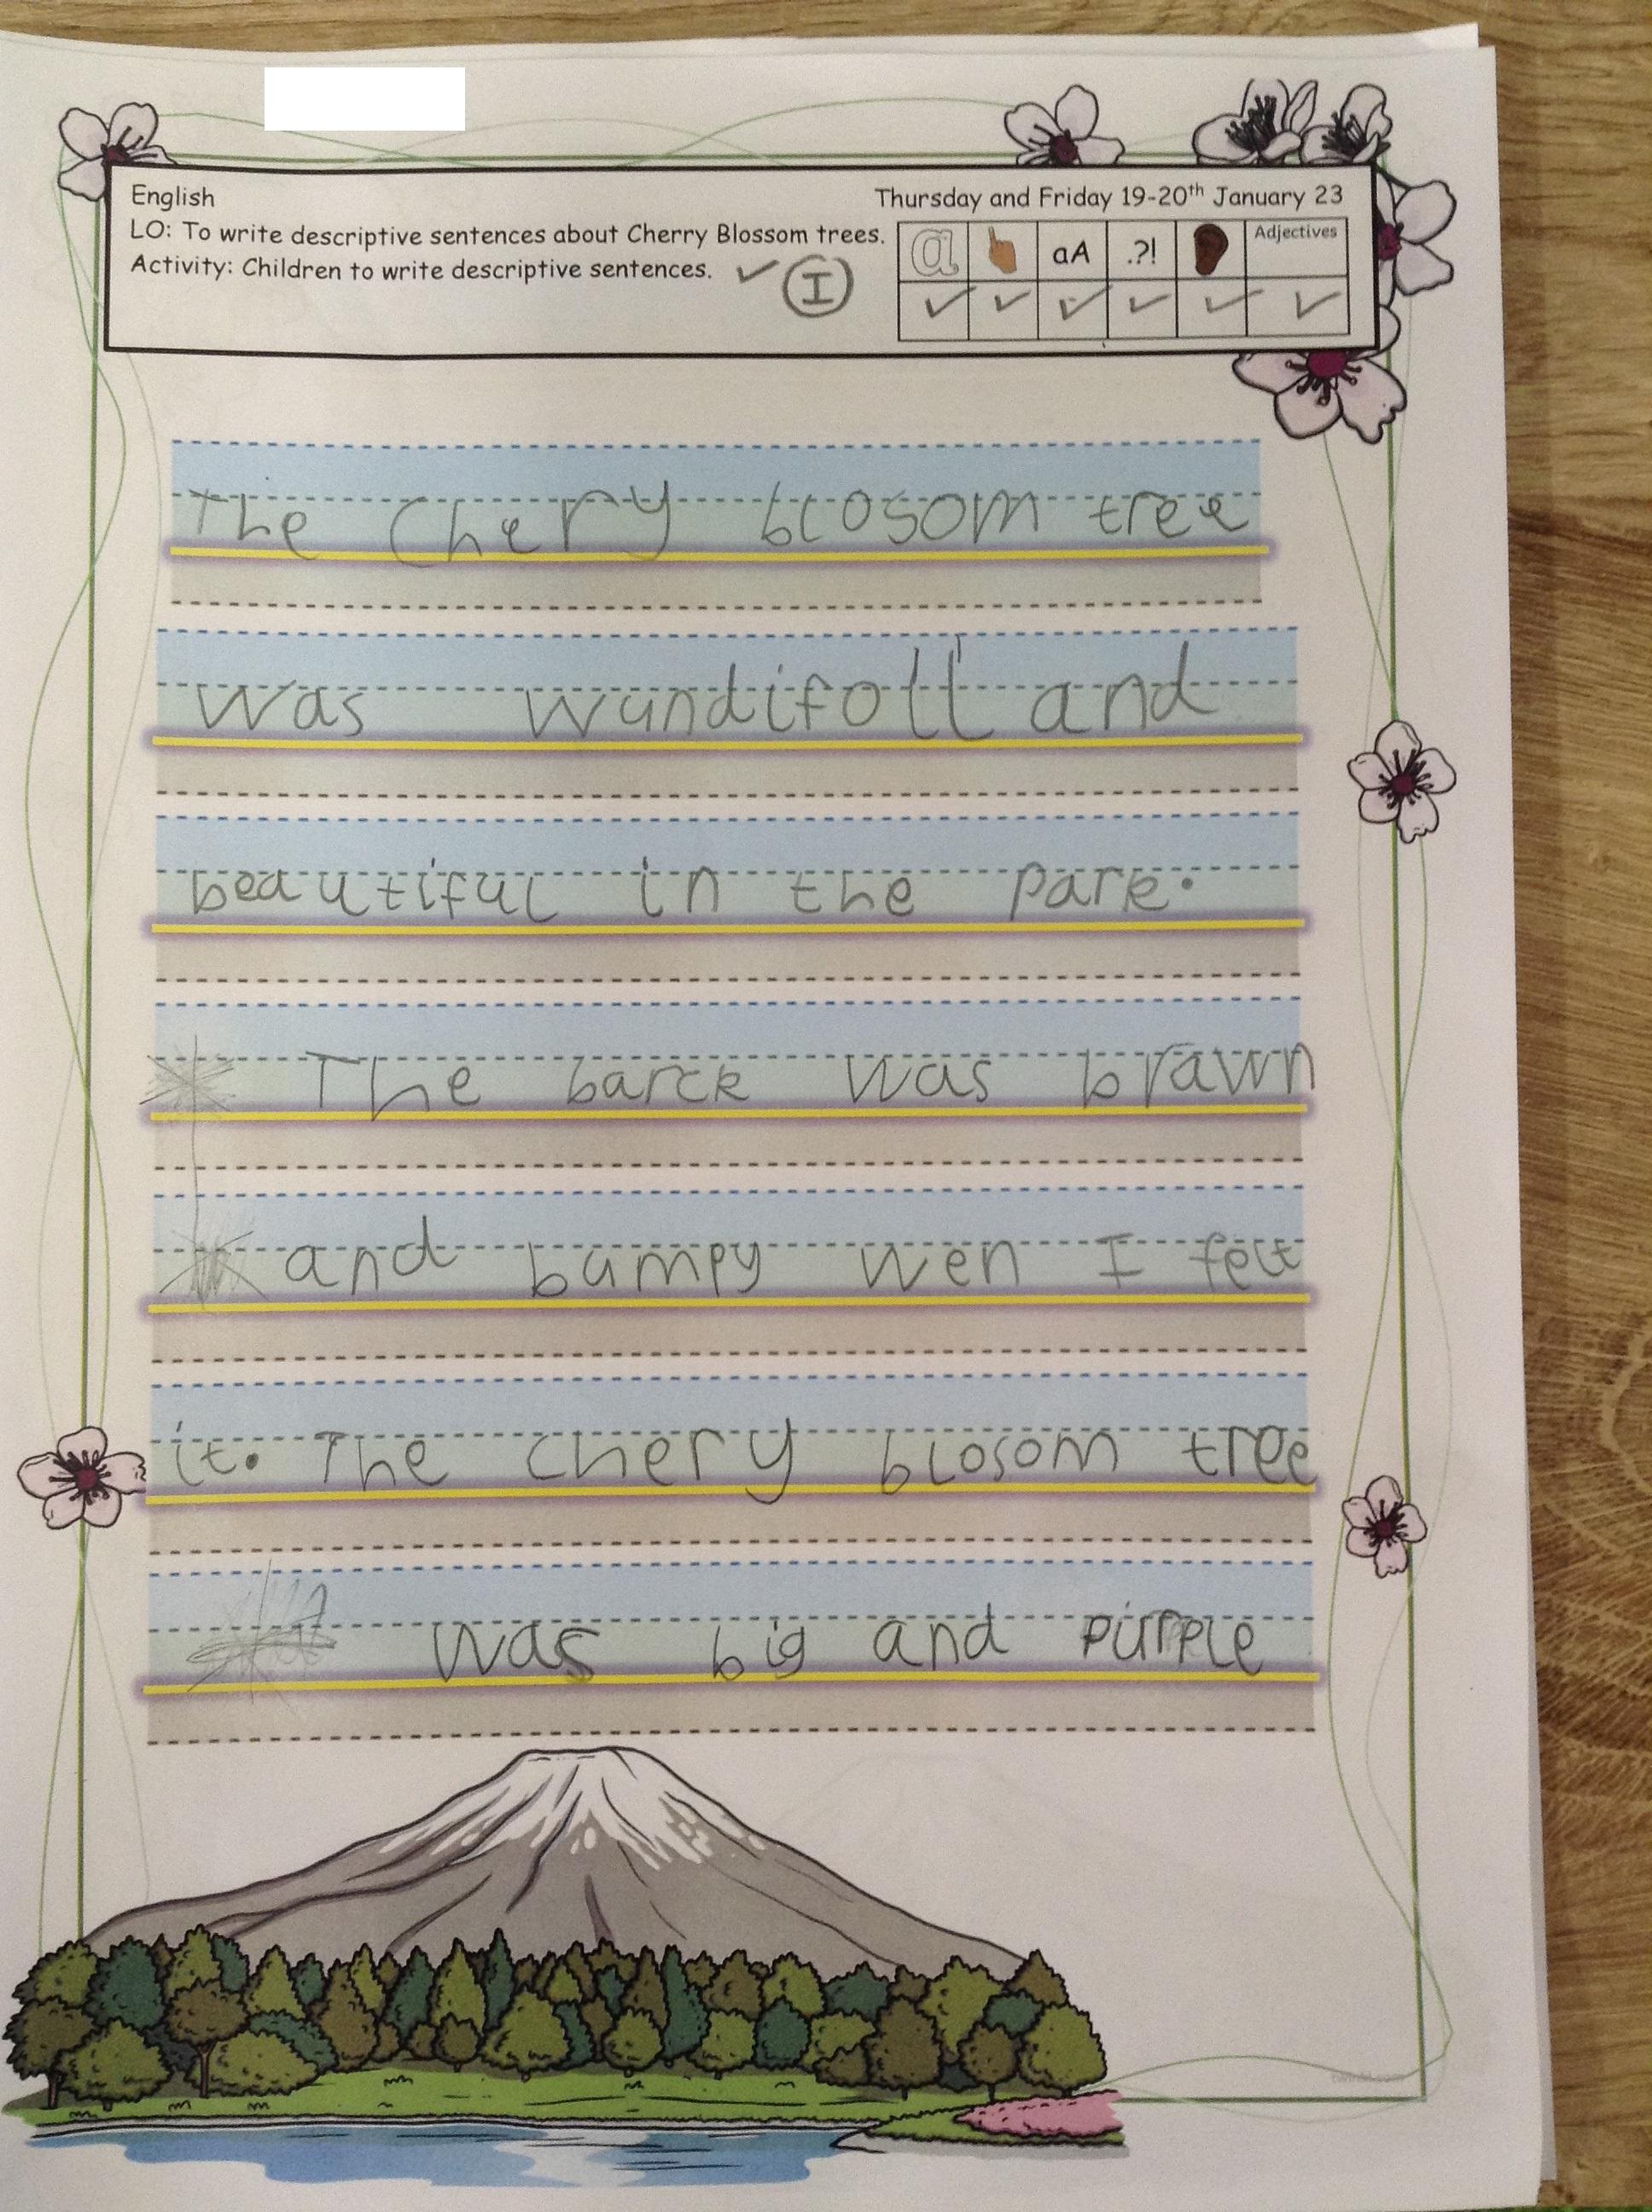 English
Thursday and Friday 19-20th January 23
LO: To write descriptive sentences about Cherry Blossom trees.
Activity: Children to write descriptive sentences. ✓ I
a aA .?! Adjectives
✓ ✓ ✓ ✓ ✓ ✓
The Chery blosom tree
was wundifoll and
beautiful in the park.
The barck was brawn
and bumpy wen I felt
it. The chery blosom tree
was big and purple